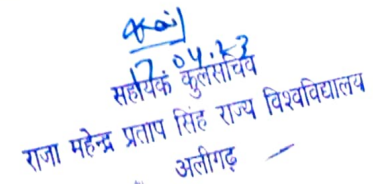 17.04.23
सहायक कुलसचिव
राजा महेन्द्र प्रताप सिंह राज्य विश्वविद्यालय
अलीगढ़